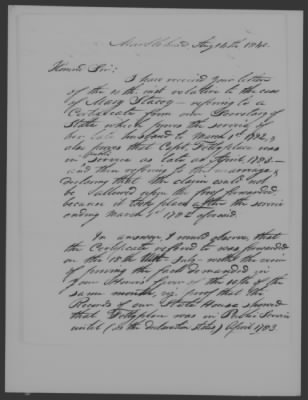 Marblehead Aug 14th 1840.
Honored Sir:
I have received your letter
of the 11th inst relative to the case
of Mary Stacey - referring to a
Certificate from our Secretary of
State which proves the service for
her late husband to March 1st 1782, &
also proves that Capt. Fettyplace was
in Public service as late as April 1783 -
and then refering to the marriage &
declaring that the claim could not
be allowed upon the proof forwarded
because it took place after the service
ending March 1st 1782 aforesaid.
In answer, I would observe, that
the Certificate referred to was forwarded
on the 18th Ult. July - with the view
of proving the fact demanded in
your Honors favor of the
same month, viz. proof that the
Records of our State House showed
that Fettyplace was in Public Service
until (as the declaration states) April 1783